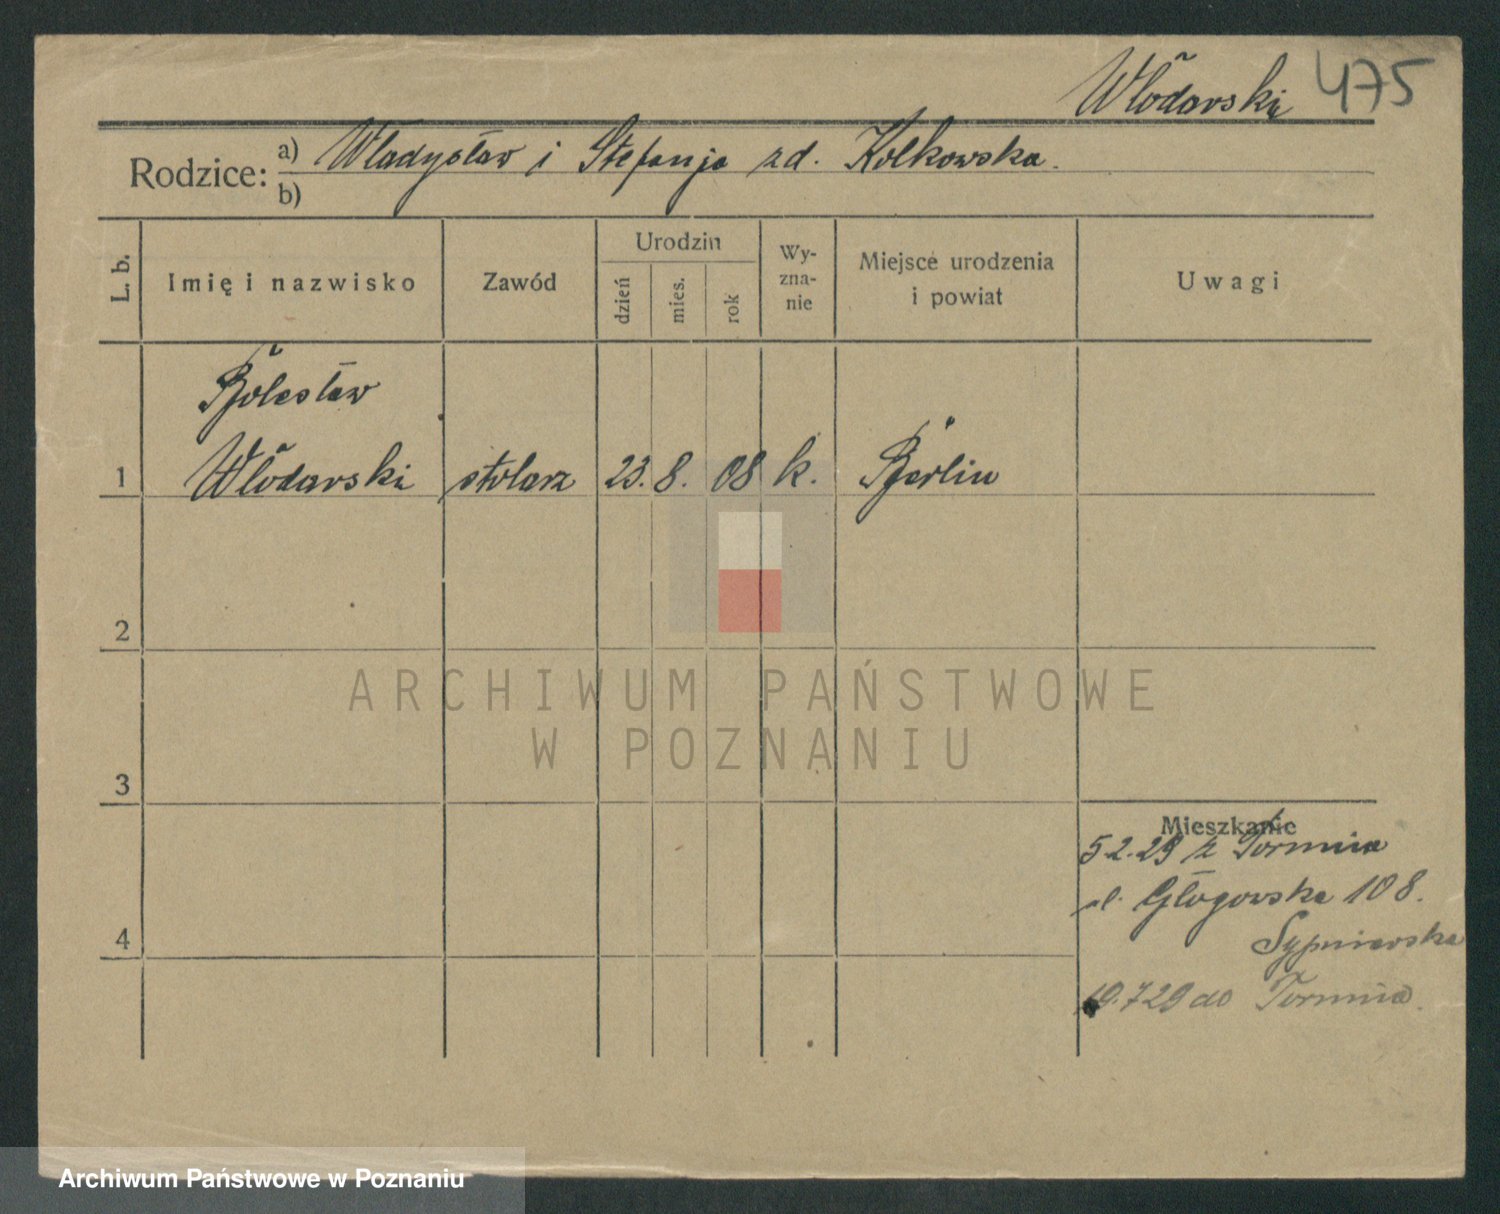 Włodarski 475
Rodzice: a) Władysław i Stefanja zd. Kolkowska.
b)
L. b. Imię i nazwisko Zawód Urodzin dzień mies. rok Wy-zna-nie Miejsce urodzenia i powiat Uwagi
Bolesław
1 Włodarski stolarz 23. 8. 08 k. Berlin
2
ARCHIWUM PAŃSTWOWE
W POZNANIU
3
Mieszkanie
5 2.29 z Torunia
ul. Głogowska 108.
4
Sypniewska
19.7 29 do Torunia.
Archiwum Państwowe w Poznaniu